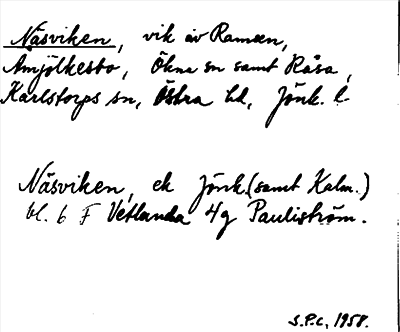 Näsviken, vik av Ramsen,
Amjölkesbo, Ökna sn samt Råsa,
Karlstorps sn, Östra hd, Jönk. l
Näsviken, ek Jönk. (samt Kalm.)
bl. 6 F Vetlanda 4g Pauliström.
S.P.C, 1958.